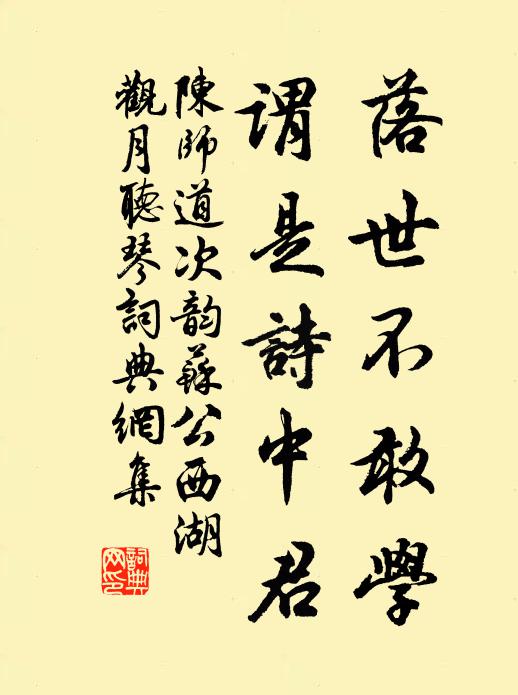 落世不敢學
謂是詩中君
陳師道次韵蘇公西湖
觀月聽琴詞典網集
詞典
网印